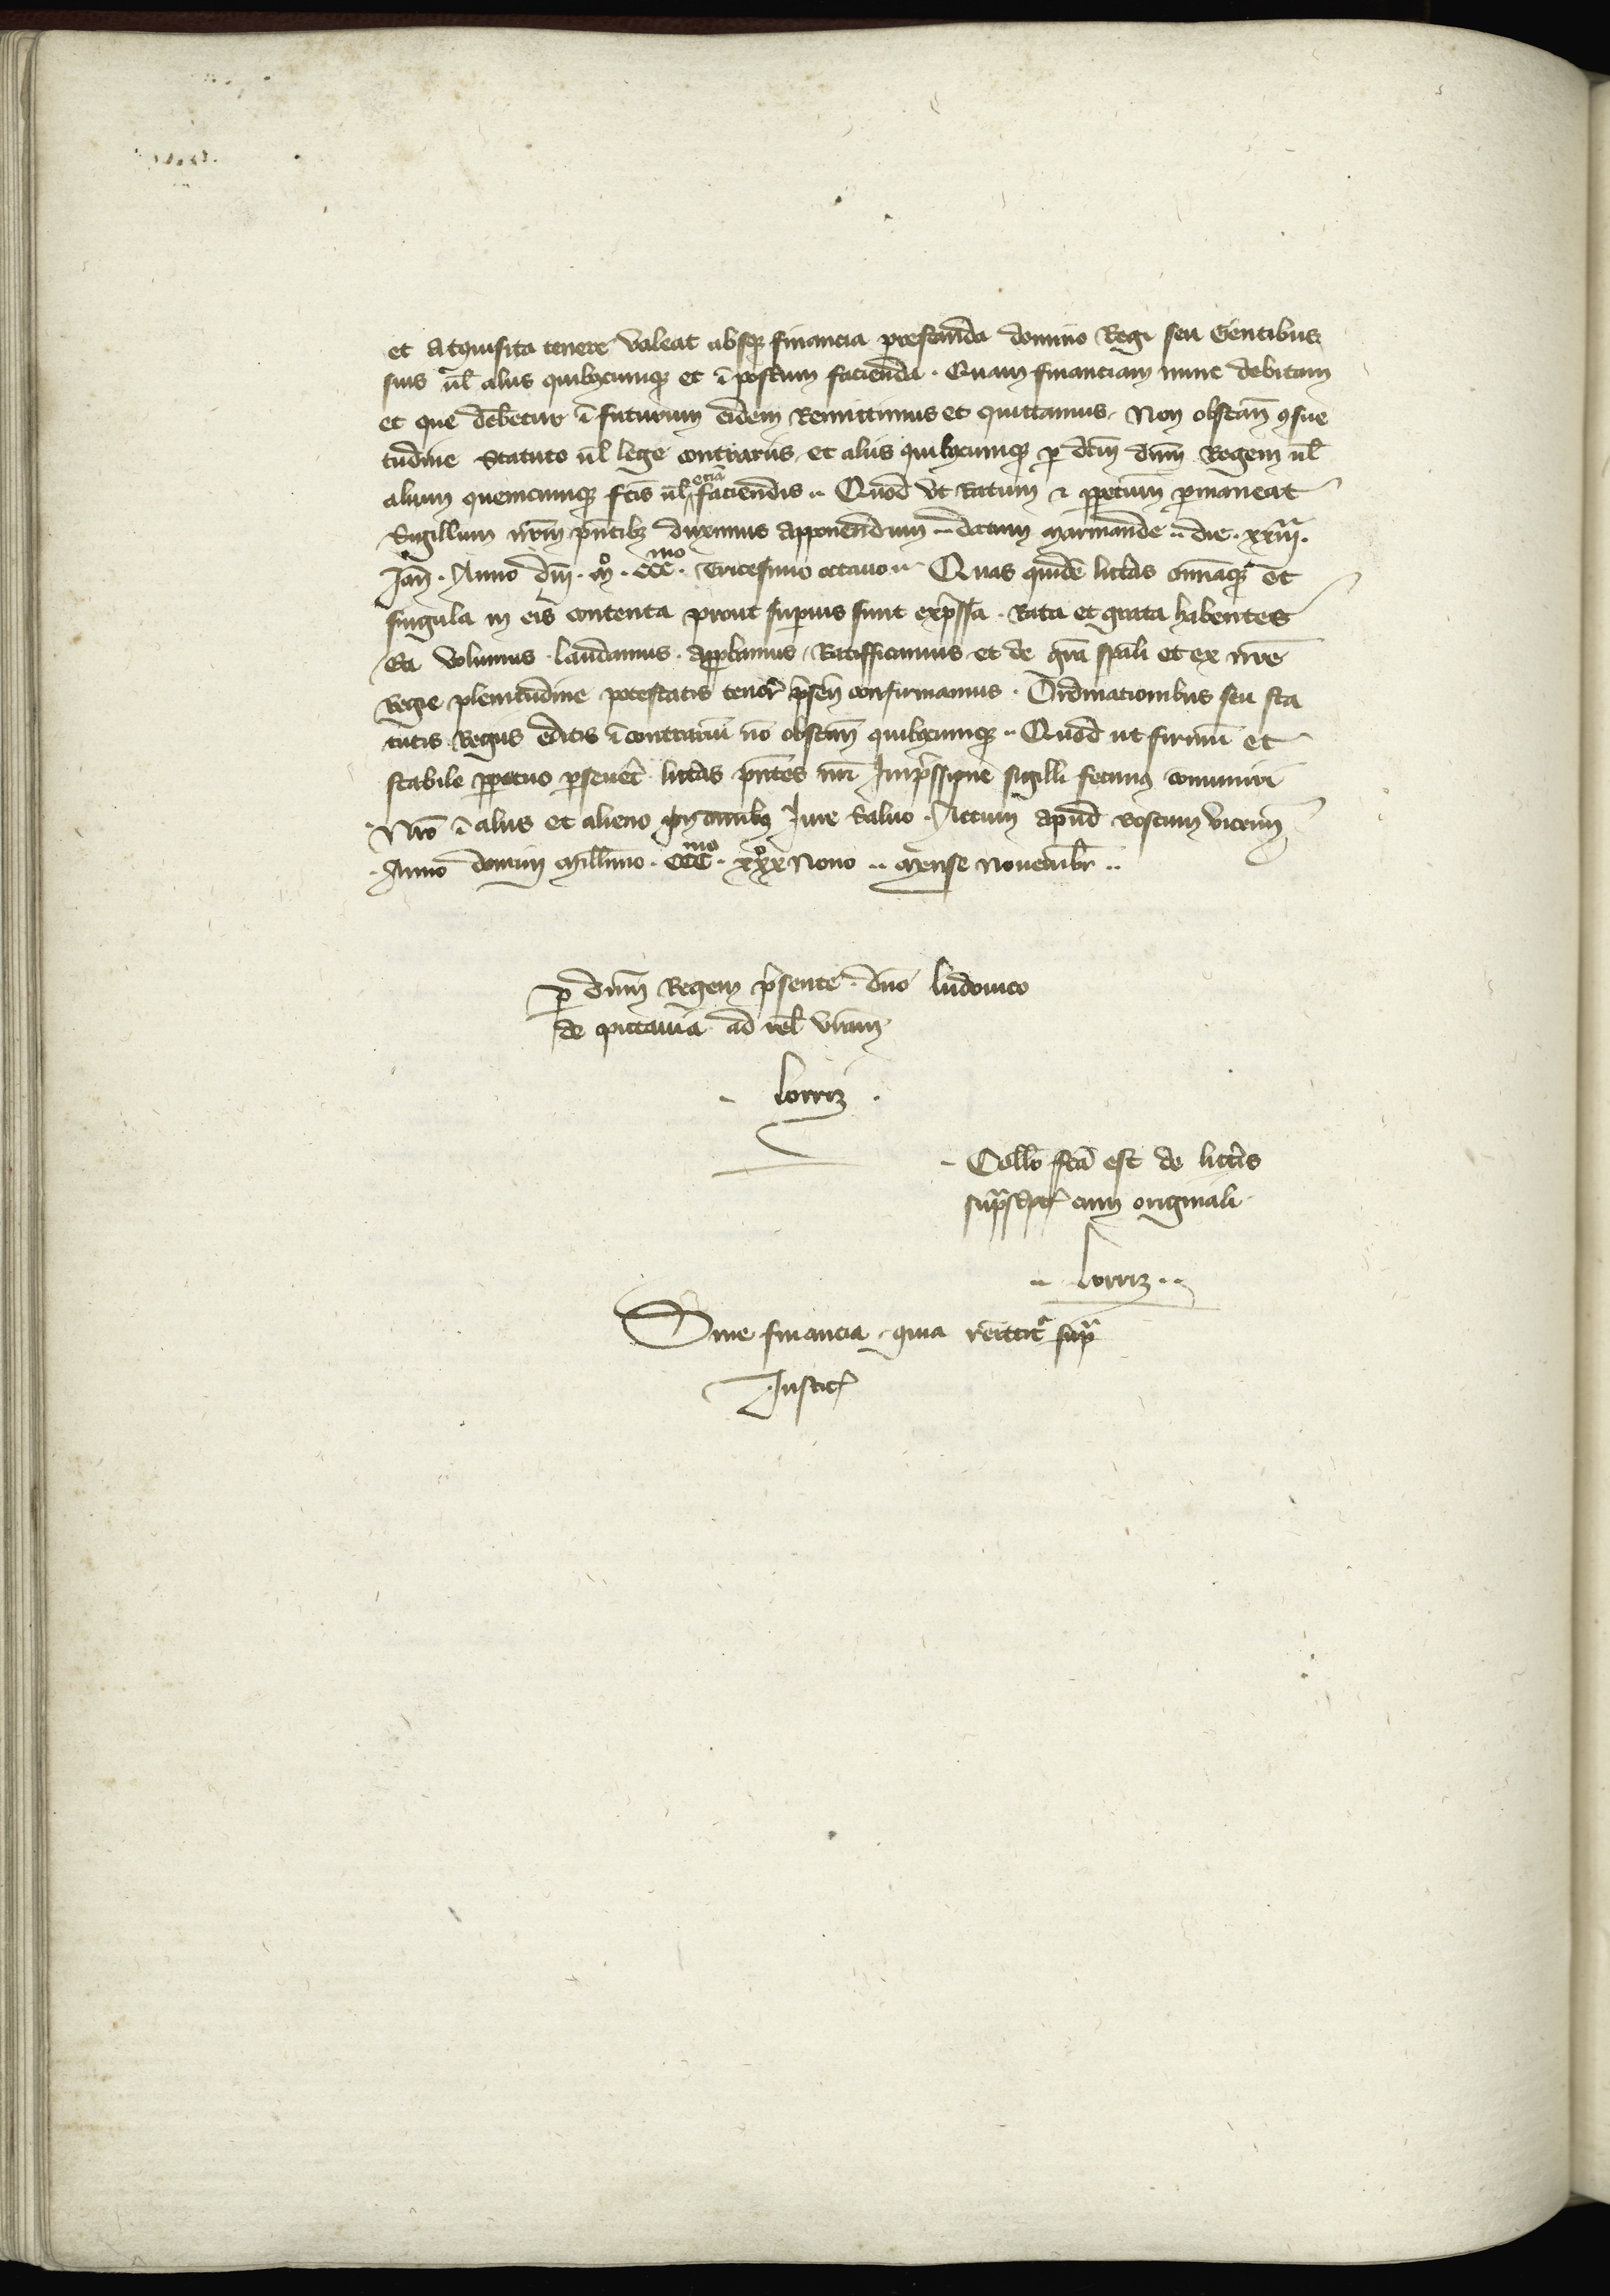 et acquisita tenere valeat absq financia prestanda domino Regi seu Gentibus
suis ul aliis quibuscunq et i postm facienda . Quam financiam nunc debitam
et que debetur i futurum eidem Remittimus et quittamus . Non obstan 9sue
tudine statuto ul lege contrariis . et aliis quibuscunq p dcm dnm Regem ul
alium quemcunq fcis ul etia faciendis .. Quod ut Ratum et ppetuum pmaneat
Sigillum nrm pntibus duximus apponendum .. datum marmande .. die . xxiiiia .
Jan . Anno dni . mo . CCCmo . Tricesimo octavo .. Quas quide littas omiaq et
singula in eis contenta prout supius sunt expssa . Rata et grata habentes
Ea volumus . laudamus . approbamus . Ratifficamus et de gra spali et ex nre
regie plenitudine potestatis tenore psen confirmamus . Ordinationibus seu sta
tutis Regiis editis i contrarium no obstan quibuscunq .. Quod ut firmu et
stabile ppetuo pseueret littas pntes nri Impssione sigilli fecimus comuniri
Nro i aliis et alieno in omibus Jure saluo . Actum apud boscum vicenn
Anno domini Millimo . CCCmo . xxxo Nono .. Mense Novembr ..
p dnm Regem psente dno ludouico
de pictauia ad rel vram
lorriz .
Collo fca est de littis
suprascptis cum originali
.. lorriz ..
Sine financia quia remittitur supra
Justic